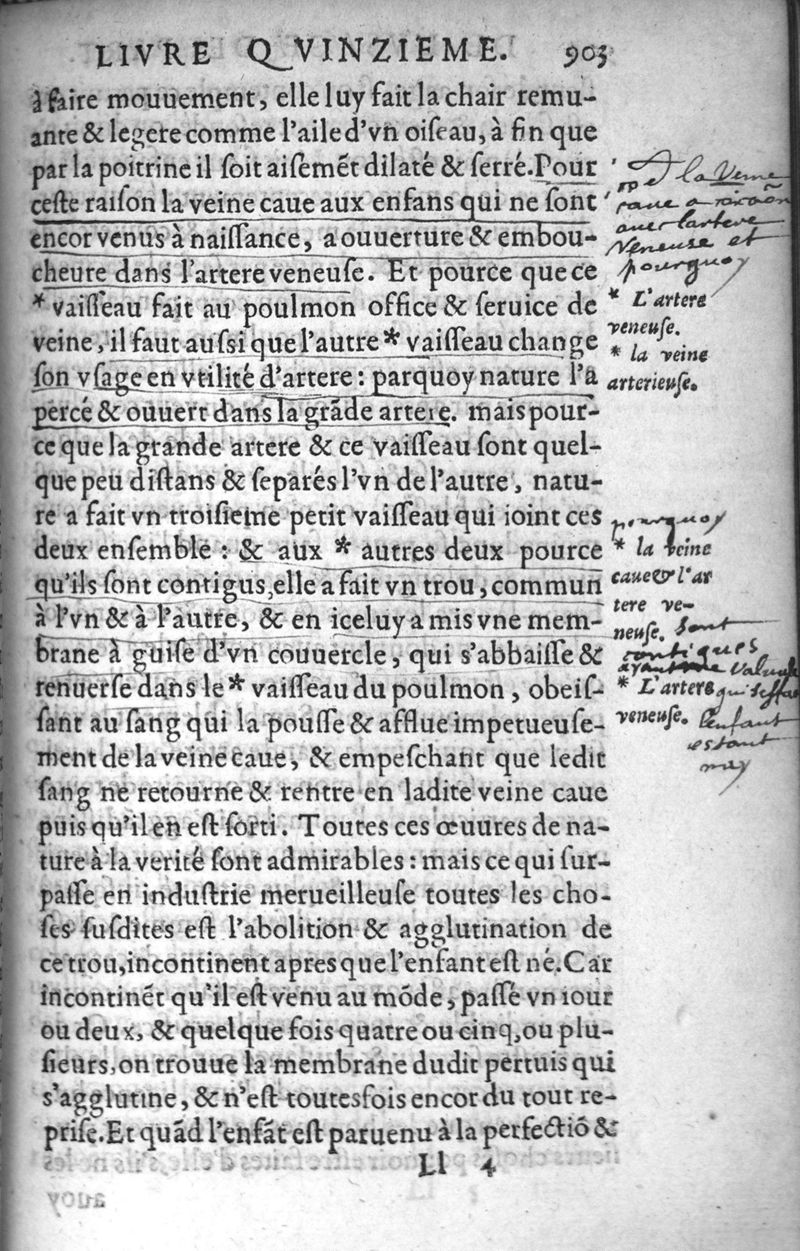 LIVRE QVINZIEME. 903
à faire mouuement, elle luy fait la chair remu-
ante & legere comme l'aile d'vn oiſeau, à fin que
par la poitrine il ſoit aiſemẽt dilaté & ſerré. Pour
ceſte raiſon la veine caue aux enfans qui ne ſont
encor venus à naiſſance, a ouuerture & embou-
cheure dans l'artere veneuſe. Et pource que ce
* vaiſſeau fait au poulmon office & ſeruice de
veine, il faut auſsi que l'autre * vaiſſeau change
ſon vſage en vtilité d'artere : parquoy nature l'a
percé & ouuert dans la grãde artere. mais pour-
ce que la grande artere & ce vaiſſeau ſont quel-
que peu diſtans & ſeparés l'vn de l'autre, natu-
re a fait vn troiſieme petit vaiſſeau qui ioint ces
deux enſemble : & aux * autres deux pource
qu'ils ſont contigus, elle a fait vn trou, commun
à l'vn & à l'autre, & en iceluy a mis vne mem-
brane à guiſe d'vn couuercle, qui s'abbaiſſe &
renuerſe dans le * vaiſſeau du poulmon, obeiſ-
ſant au ſang qui la pouſſe & afflue impetueuſe-
ment de la veine caue, & empeſchant que ledit
ſang ne retourne & rentre en ladite veine caue
puis qu'il en eſt ſorti. Toutes ces œuures de na-
ture à la verité ſont admirables : mais ce qui ſur-
paſſe en induſtrie merueilleuſe toutes les cho-
ſes ſuſdites eſt l'abolition & agglutination de
ce trou, incontinent apres que l'enfant eſt né. Car
incontinẽt qu'il eſt venu au mõde, paſſé vn iour
ou deux, & quelque fois quatre ou cinq, ou plu-
ſieurs, on trouue la membrane dudit pertuis qui
s'agglutine, & n'eſt toutesfois encor du tout re-
priſe. Et quãd l'enfãt eſt paruenu à la perfectiõ &
Ll 4
la Veine
auec lartere
Veneuse et
pourquoy
* L'artere
veneuſe.
* la veine
arterieuſe.
pourquoy
* la veine
caue & l'ar
tere ve-
neuſe. Sont
contigues
* L'artere
veneuſe.
Lenfant
estant